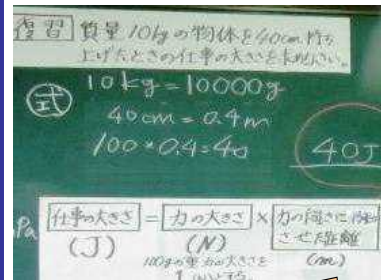 復習 質量10kgの物体を40cm持ち
上げたときの仕事の大きさを求めなさい。
式 10kg=10000g
40cm=0.4m
100×0.4=40
40J
Pa
仕事の大きさ = 力の大きさ × 力の向きに
させた距離
(J) (N) (m)
100gの 力の大きさを
1